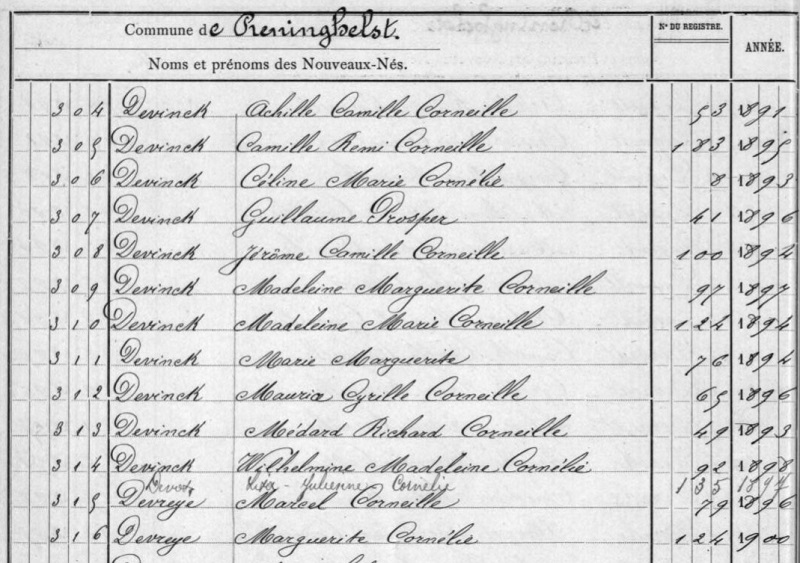 Commune de Reninghelst.
Nº DU REGISTRE.
ANNÉE.
Noms et prénoms des Nouveaux-Nés.
304 Devinck Achille Camille Corneille 53 1891
305 Devinck Camille Remi Corneille 183 1895
306 Devinck Céline Marie Cornélie 8 1893
307 Devinck Guillaume Prosper 41 1896
308 Devinck Jérôme Camille Corneille 100 1892
309 Devinck Madeleine Marguerite Corneille 97 1897
310 Devinck Madeleine Marie Corneille 124 1894
311 Devinck Marie Marguerite 76 1894
312 Devinck Maurice Cyrille Corneille 65 1896
313 Devinck Médard Richard Corneille 49 1893
314 Devinck Wilhelmine Madeleine Cornélie 92 1898
Julienne Cornelie 135 1897
315 Devreye Marcel Corneille 79 1896
316 Devreye Marguerite Cornélie 124 1900